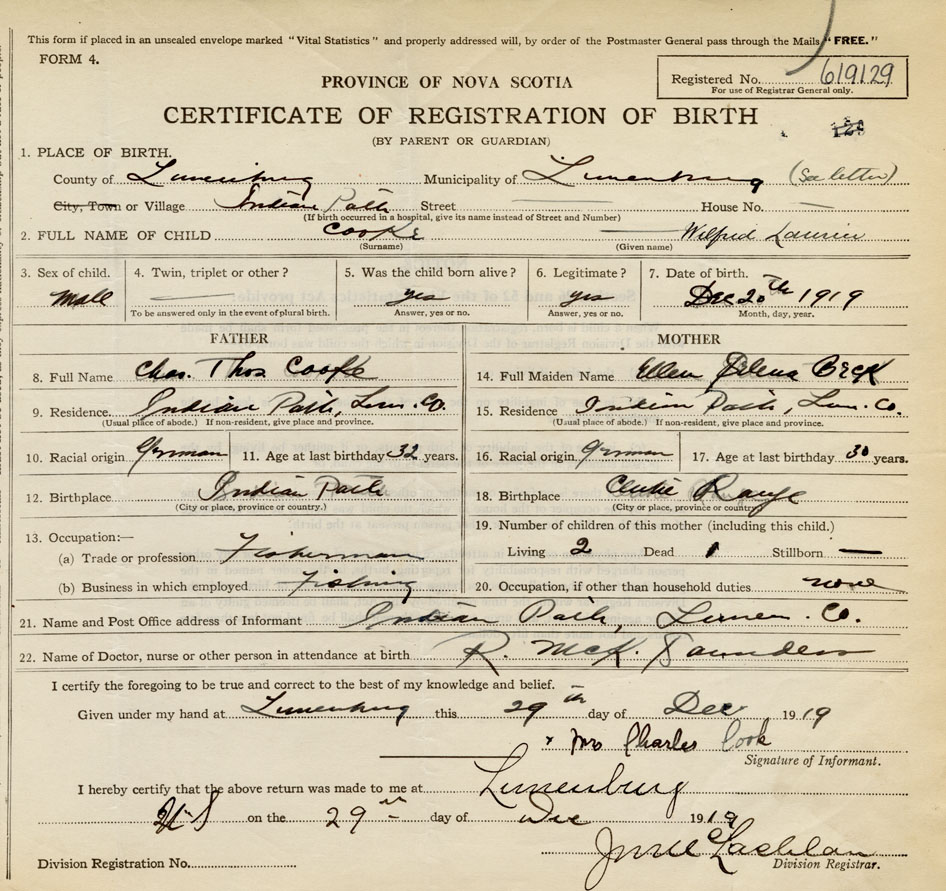 This form if placed in an unsealed envelope marked "Vital Statistics" and properly addressed will, by order of the Postmaster General pass through the Mails "FREE."
FORM 4.
Registered No. 619129
For use of Registrar General only.
PROVINCE OF NOVA SCOTIA
CERTIFICATE OF REGISTRATION OF BIRTH
(BY PARENT OR GUARDIAN)
1. PLACE OF BIRTH.
County of Lunenburg Municipality of Lunenburg (See letter)
City, Town or Village Indian Path Street House No.
(If birth occurred in a hospital, give its name instead of Street and Number)
2. FULL NAME OF CHILD Cooke Wilfred Laurier
(Surname) (Given name)
3. Sex of child. 4. Twin, triplet or other? 5. Was the child born alive? 6. Legitimate? 7. Date of birth.
Male yes yes Dec 20th 1919
To be answered only in the event of plural birth. Answer, yes or no. Answer, yes or no. Month, day, year.
FATHER MOTHER
8. Full Name Chas. Thos Cooke 14. Full Maiden Name Ellen
9. Residence. Indian Path, Lun. Co. 15. Residence Indian Path, Lun. Co.
(Usual place of abode.) If non-resident, give place and province. (Usual place of abode.) If non-resident, give place and province.
10. Racial origin German 11. Age at last birthday 32 years. 16. Racial origin German 17. Age at last birthday 30 years.
12. Birthplace Indian Path 18. Birthplace Range
(City or place, province or country.) (City or place, province or country)
13. Occupation:— 19. Number of children of this mother (including this child.)
(a) Trade or profession Fisherman Living 2 Dead 1 Stillborn —
(b) Business in which employed Fishing 20. Occupation, if other than household duties. none
21. Name and Post Office address of Informant Indian Path, Lunen. Co.
22. Name of Doctor, nurse or other person in attendance at birth R. McK. Saunders
I certify the foregoing to be true and correct to the best of my knowledge and belief.
Given under my hand at Lunenburg this 29th day of Dec 1919
x Mrs Charles Cook
Signature of Informant.
I hereby certify that the above return was made to me at Lunenburg
N.S on the 29th day of Dec 1919
Division Registration No.
Division Registrar.